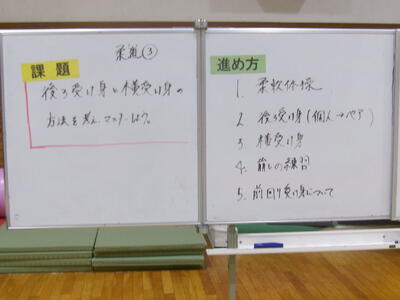 柔道③
課題
後ろ受け身と横受け身の
方法を考え、マスターしよう。
進め方
1. 柔軟体操
2 後ろ受け身(個人→ペア)
3 横受け身
4. 崩しの練習
5. 前回り受け身について